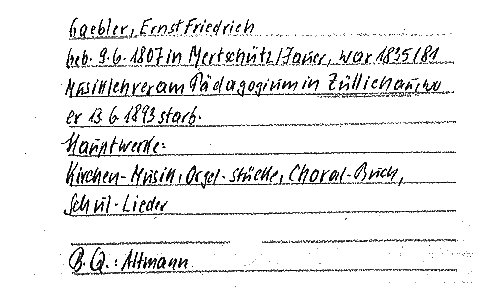 Gaebler, Ernst Friedrich
geb. 9.6.1807 in Mertschütz/Jauer, war 1835/81
Musiklehrer am Pädagogium in Züllichau, wo
er 13.6.1893 starb.
Hauptwerke:
Kirchen-Musik, Orgel-stücke, Choral-Buch,
Schul-Lieder
B.Q.: Altmann